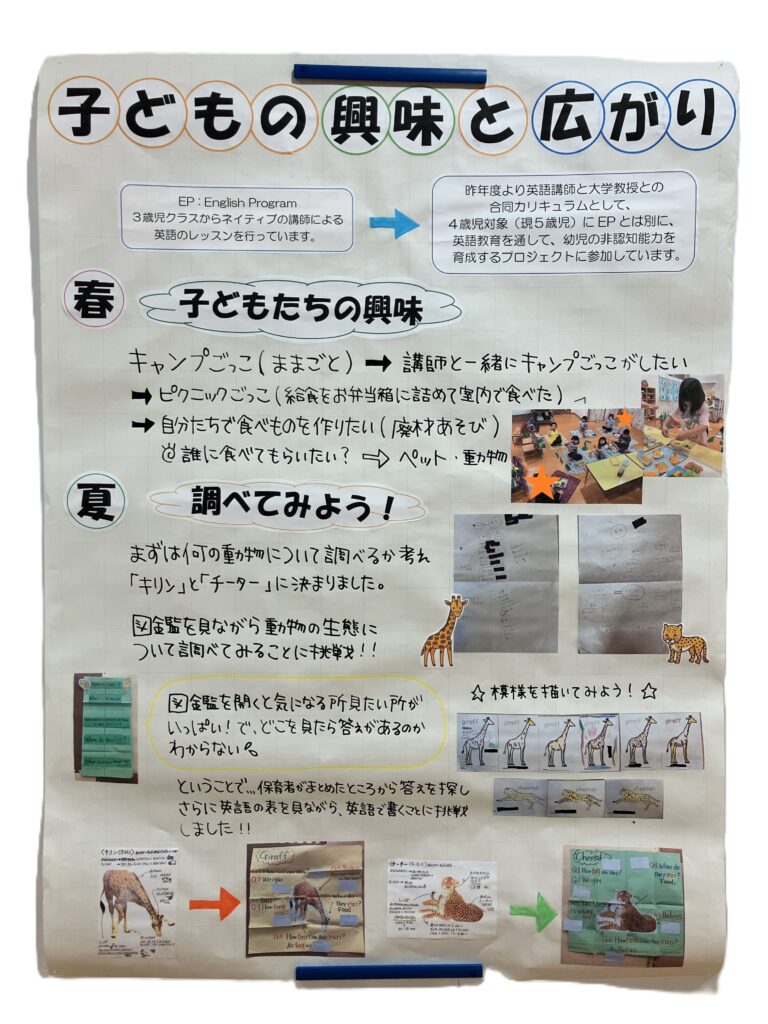 子どもの興味と広がり
EP：English Program
３歳児クラスからネイティブの講師による
英語のレッスンを行っています。
昨年度より英語講師と大学教授との
合同カリキュラムとして、
４歳児対象（現５歳児）にEPとは別に、
英語教育を通して、幼児の非認知能力を
育成するプロジェクトに参加しています。
春
子どもたちの興味
キャンプごっこ(ままごと)➡講師と一緒にキャンプごっこがしたい
➡ピクニックごっこ(給食をお弁当箱に詰めて室内で食べた)
➡自分たちで食べものを作りたい(廃材あそび)
誰に食べてもらいたい？⇨ペット・動物
夏
調べてみよう！
まずは何の動物について調べるか考え
「キリン」と「チーター」に決まりました。
図鑑を見ながら動物の生態に
ついて調べてみることに挑戦!!
図鑑を開くと気になる所見たい所が
いっぱい！で、どこを見たら答えがあるのか
わからない
☆模様を描いてみよう！☆
giraff giraff giraff giraff giraff giraff
cheetah cheetah cheetah
ということで…保育者がまとめたところから答えを探し
さらに英語の表を見ながら、英語で書くことに挑戦
しました!!
Giraff
Q2 Weight
Food
Cheetah
Q2 Weight
Q3 Where do
they eat?
Food